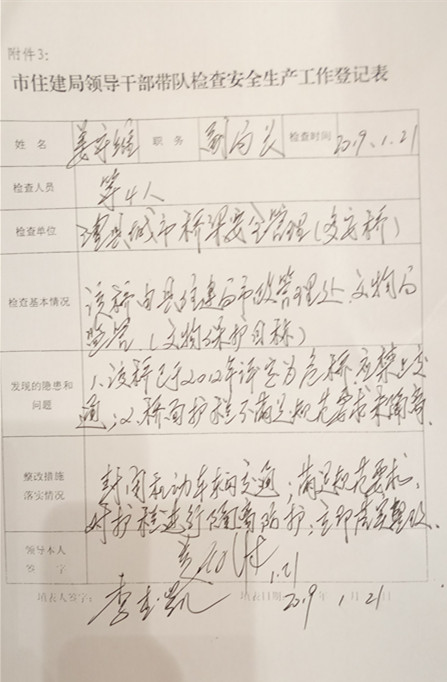 附件3:
市住建局领导干部带队检查安全生产工作登记表
姓 名 职 务 副局长 检查时间 2019.1.21
检查人员 等4人
检查单位 城市桥梁安全管理(文 桥)
检查基本情况 该桥由县住建局市政管理处、文物局
监管(文物保护目标)
发现的隐患和
问题
1.该桥已于2012年评定为危桥,应禁止交
通;2.桥面护栏不满足规范要求
整改措施
落实情况
封闭机动车辆交通;满足规范要求,
对护栏进行 防护,立即落实整改。
领导本人
签 字
1.21
填表人签字: 李 凯 填表日期: 2019 年 1.21